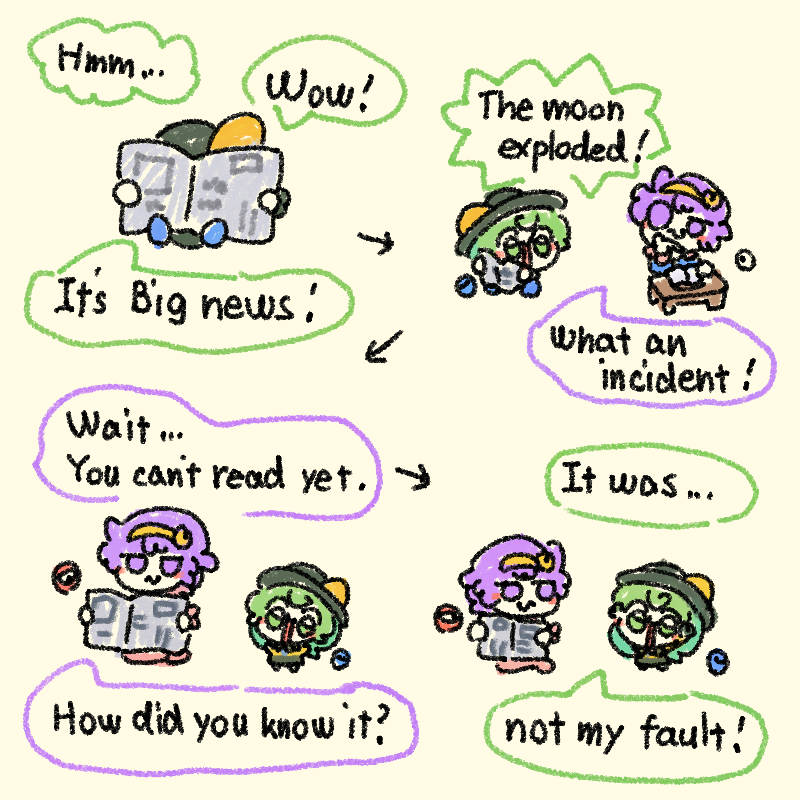 Hmm...
Wow!
It's Big news!
The moon
exploded!
What an
incident!
Wait...
You can't read yet.
How did you know it?
It was...
not my fault!